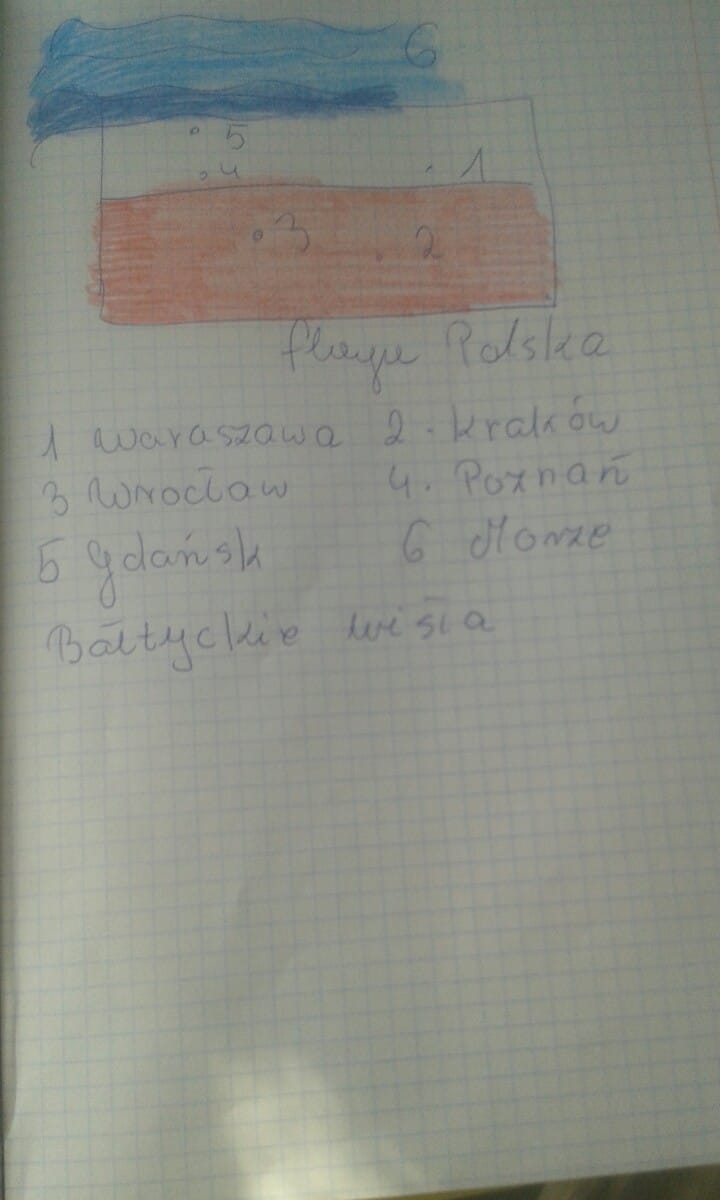 6
5
4 1
3 2
flaga Polska
1 Waraszawa 2. Kraków
3 Wrocław 4. Poznań
5 Gdańsk 6 Morze
Bałtyckie wisła